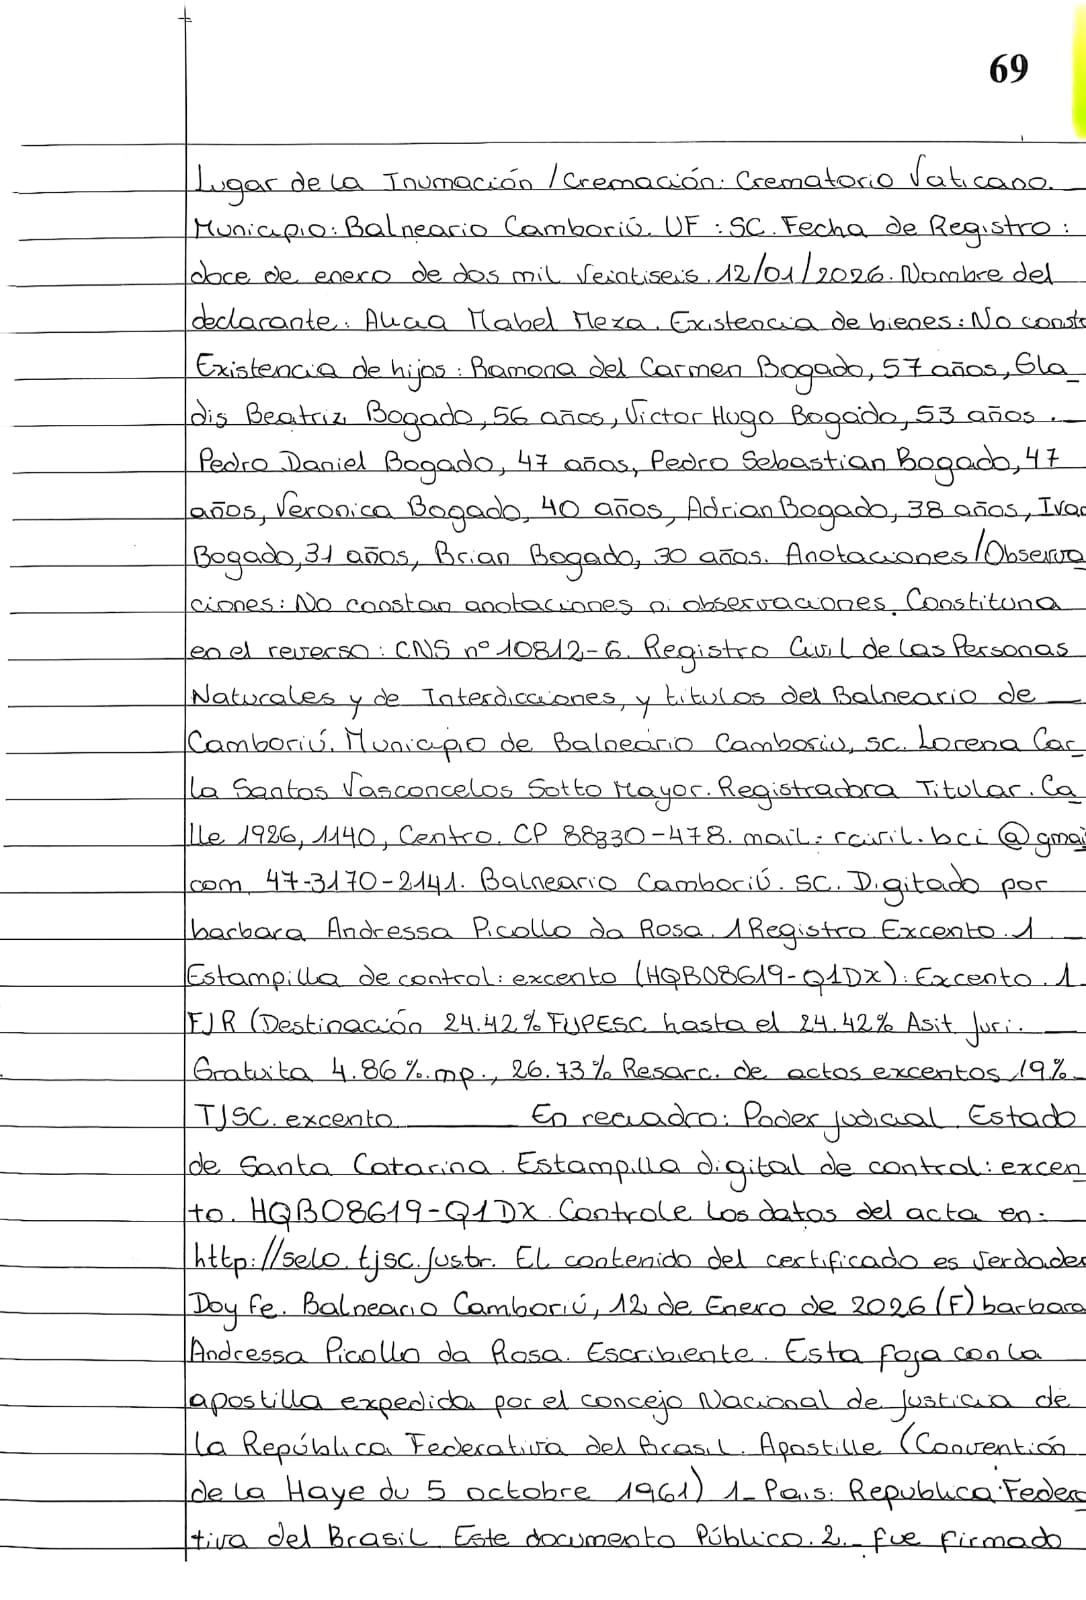 69
Lugar de la Inumación / Cremación: Crematorio Vaticano.
Municipio: Balneario Camboriú. UF : SC. Fecha de Registro :
doce de enero de dos mil Veintiseis. 12/01/2026. Nombre del
declarante: Alicia Mabel Meza. Existencia de bienes: No consta
Existencia de hijos : Ramona del Carmen Bogado, 57 años, Gla_
dis Beatriz Bogado, 56 años, Victor Hugo Bogado, 53 años .
Pedro Daniel Bogado, 47 años, Pedro Sebastian Bogado, 47
años, Veronica Bogado, 40 años, Adrian Bogado, 38 años, Ivan
Bogado, 31 años, Brian Bogado, 30 años. Anotaciones/Observa
ciones: No constan anotaciones ni observaciones. Constituna
en el reverso : CNS nº 10812-6. Registro Civil de las Personas
Naturales y de Interdicciones, y titulos del Balneario de
Camboriú. Municipio de Balneario Camboriu, SC. Lorena Car_
la Santos Vasconcelos Sotto Mayor. Registradora Titular. Ca_
lle 1926, 1140, Centro. CP 88330-478. mail: rcivil.bci @ gmai
com, 47-3170-2141. Balneario Camboriú. SC. Digitado por
barbara Andressa Picollo da Rosa. 1 Registro Excento. 1
Estampilla de control: excento (HQB08619-Q1DX): Excento. 1
FJR (Destinación 24.42% FUPESC hasta el 24.42% Asit Juri.
Gratuita 4.86 %. mp., 26.73% Resarc. de actos excentos, 19%
TJSC. excento. En recuadro: Poder Judicial. Estado
de Santa Catarina. Estampilla digital de control: excen
to. HQB08619-Q1DX. Controle los datos del acta en:
http://selo.tjsc.jusbr. El contenido del certificado es Verdader
Doy Fe. Balneario Camboriú, 12 de Enero de 2026 (F) barbara
Andressa Picollo da Rosa. Escribiente. Esta foja con la
apostilla expedida por el concejo Nacional de Justicia de
la República Federativa del Brasil. Apostille (Convention
de la Haye du 5 octobre 1961) 1- Pais: Republica Federa
tiva del Brasil. Este documento Público. 2.- fue firmado